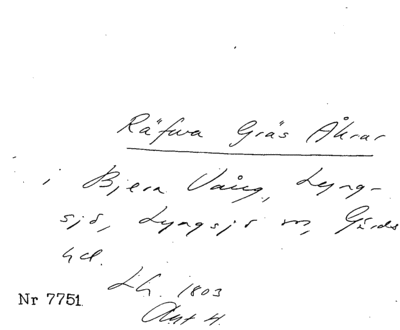 Räfwa Gräs Åkrar
i Bjera Vång, Lyng-
sjö, Lyngsjö sn, Gärds
hd.
Lh. 1803
Akt 4.
Nr 7751